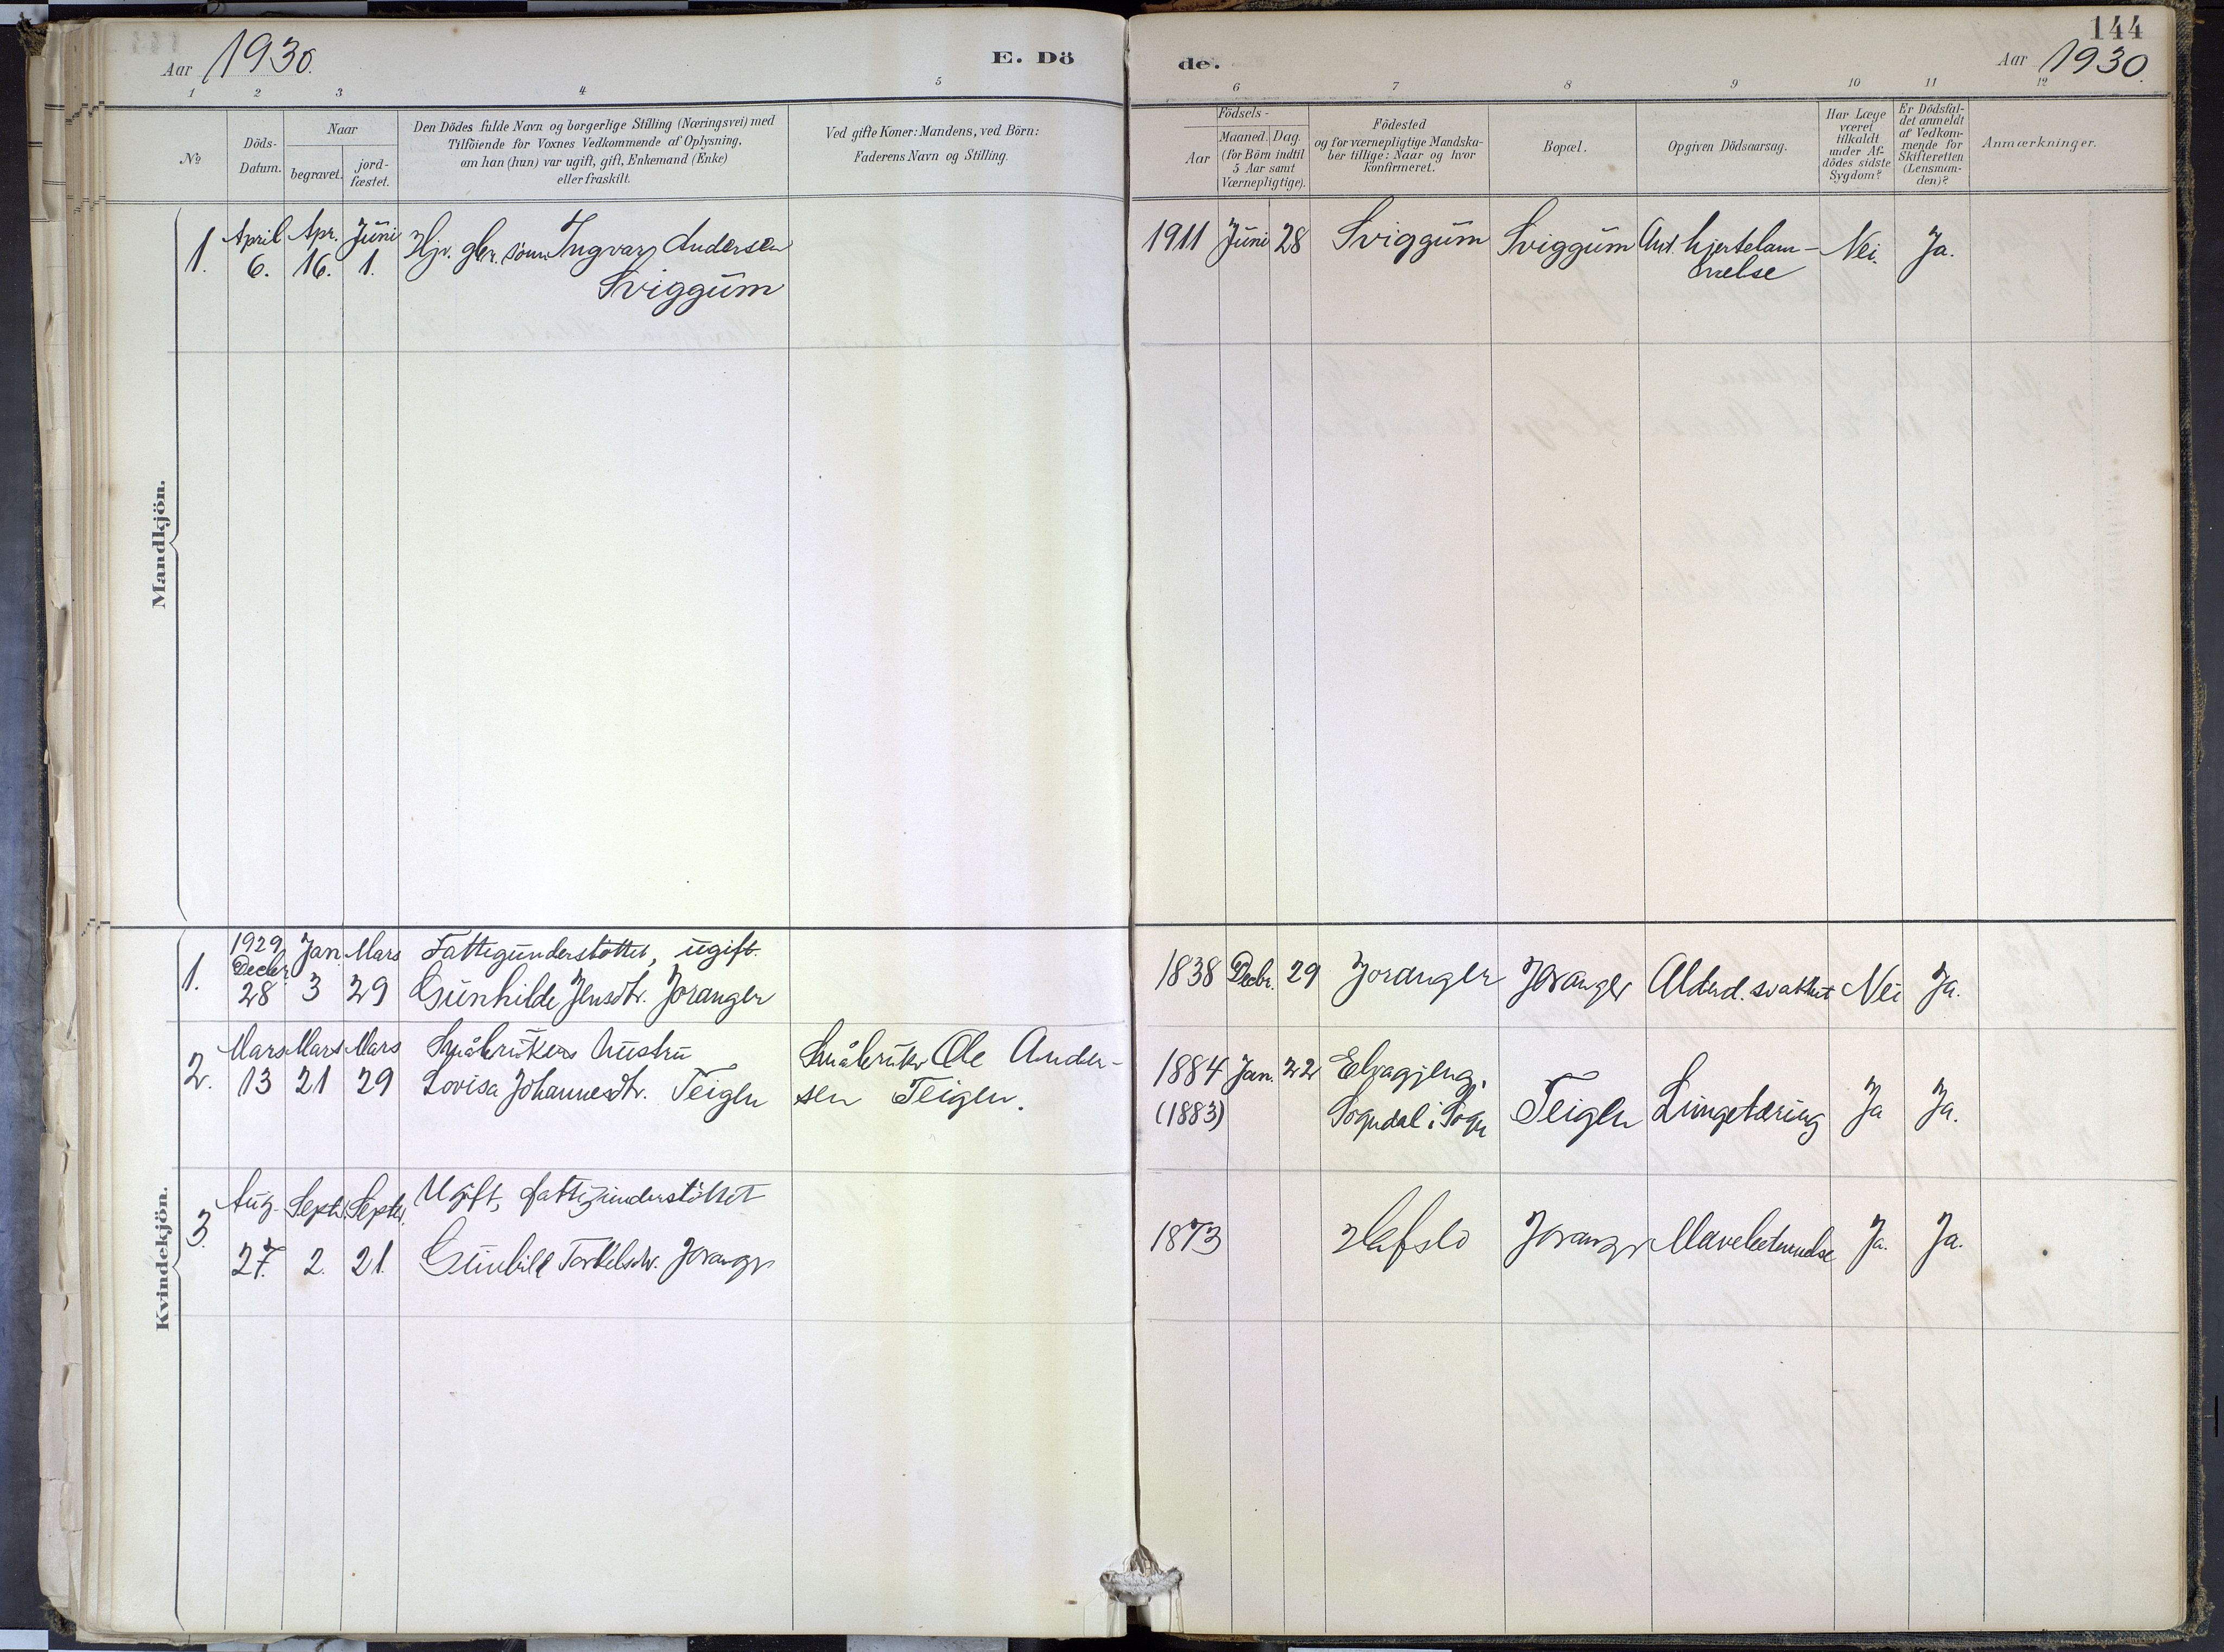 Aar 1930.
E. Dö
1 2 3 4 5
No
Döds-
Datum.
Naar
begravet.
jord-
fæstet.
Den Dödes fulde Navn og borgerlige Stilling (Næringsvei) med
Tilföiende for Voxnes Vedkommende af Oplysning,
om han (hun) var ugift, gift, Enkemand (Enke)
eller fraskilt.
Ved gifte Koner: Mandens, ved Börn:
Faderens Navn og Stilling.
Mandkjön.
1. April Apr. Juni
6. 16. 1.
sönn Ingvar Andersen
Sviggum
Kvindekjön.
1. 1929 Jan. Mars Fattigunderstöttet, ugift.
Decbr.
28 3 29 Gunhilde Jensdtr. Joranger
2. Mars Mars Mars Småbrukers hustru
13 21 29 Lovisa Johannesdtr. Teigen
Småbruker Ole Ander-
sen Teigen.
3. Aug. Septr. Septbr. Ugift, fattigunderstöttet
27. 2. 21. Gunhild Torkelsdtr. Joranger
de.
144
Aar 1930.
6 7 8 9 10 11 12
Födsels-
Aar
Maaned. Dag.
(for Börn indtil
5 Aar samt
Værnepligtige).
Födested
og for værnepligtige Mandska-
ber tillige: Naar og hvor
konfirmeret.
Bopæl.
Opgiven Dödsaarsag.
Har Læge
været
tilkaldt
under Af-
dödes sidste
Sygdom?
Er Dödsfal-
det anmeldt
af Vedkom-
mende for
Skifteretten
(Lensman-
den)?
Anmærkninger.
1911 Juni 28 Sviggum Sviggum hjertelam- Nei. Ja.
melse
1838 Decbr. 29 Joranger Joranger Alderd. svakhet Nei Ja.
1884 Jan. 22
(1883) Sogndal i Sogn Teigen Lungetæring Ja Ja.
1873 Hafslo Joranger Mavebetændelse Ja. Ja.